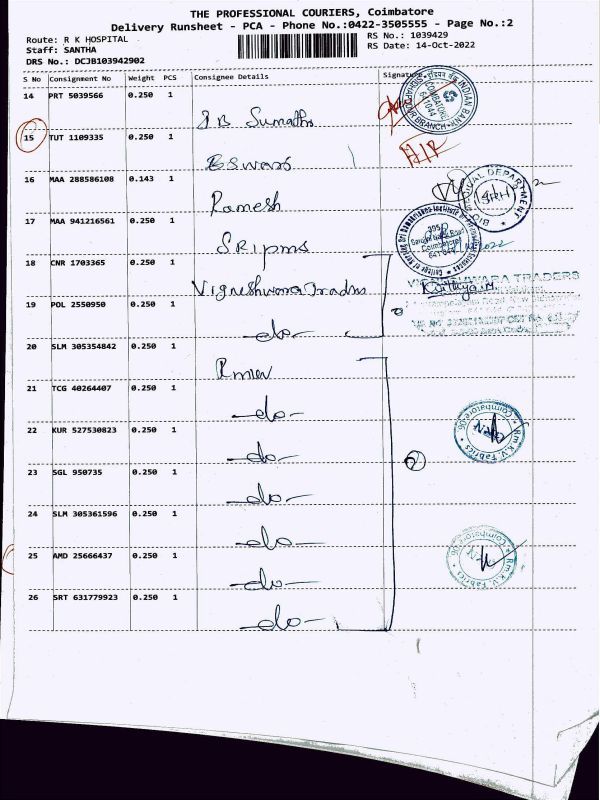 THE PROFESSIONAL COURIERS, Coimbatore
Delivery Runsheet - PCA - Phone No.:0422-3505555 - Page No.:2
Route: R K HOSPITAL RS No.: 1039429
Staff: SANTHA RS Date: 14-Oct-2022
DRS No.: DCJB103942902
S No Consignment No Weight PCS Consignee Details Signature
14 PRT 5039566 0.250 1
INDIAN BANK
COIMBATORE
641 044
BRANCH
15 TUT 1109335 0.250 1
16 MAA 288586108 0.143 1 Ramesh
17 MAA 941216561 0.250 1 SRIPMS
Coimbatore
18 CNR 1703365 0.250 1 Vigneshwara Traders
TRADERS
19 POL 2550950 0.250 1 -do-
20 SLM 305354842 0.250 1
21 TCG 40264407 0.250 1 -do-
22 KUR 527530823 0.250 1 -do-
Rm.K.V. Fabrics * Coimbatore-06 *
23 SGL 950735 0.250 1 -do-
24 SLM 305361596 0.250 1 -do-
25 AMD 25666437 0.250 1 -do-
Rm.K.V. Fabrics * Coimbatore-06 *
26 SRT 631779923 0.250 1 -do-